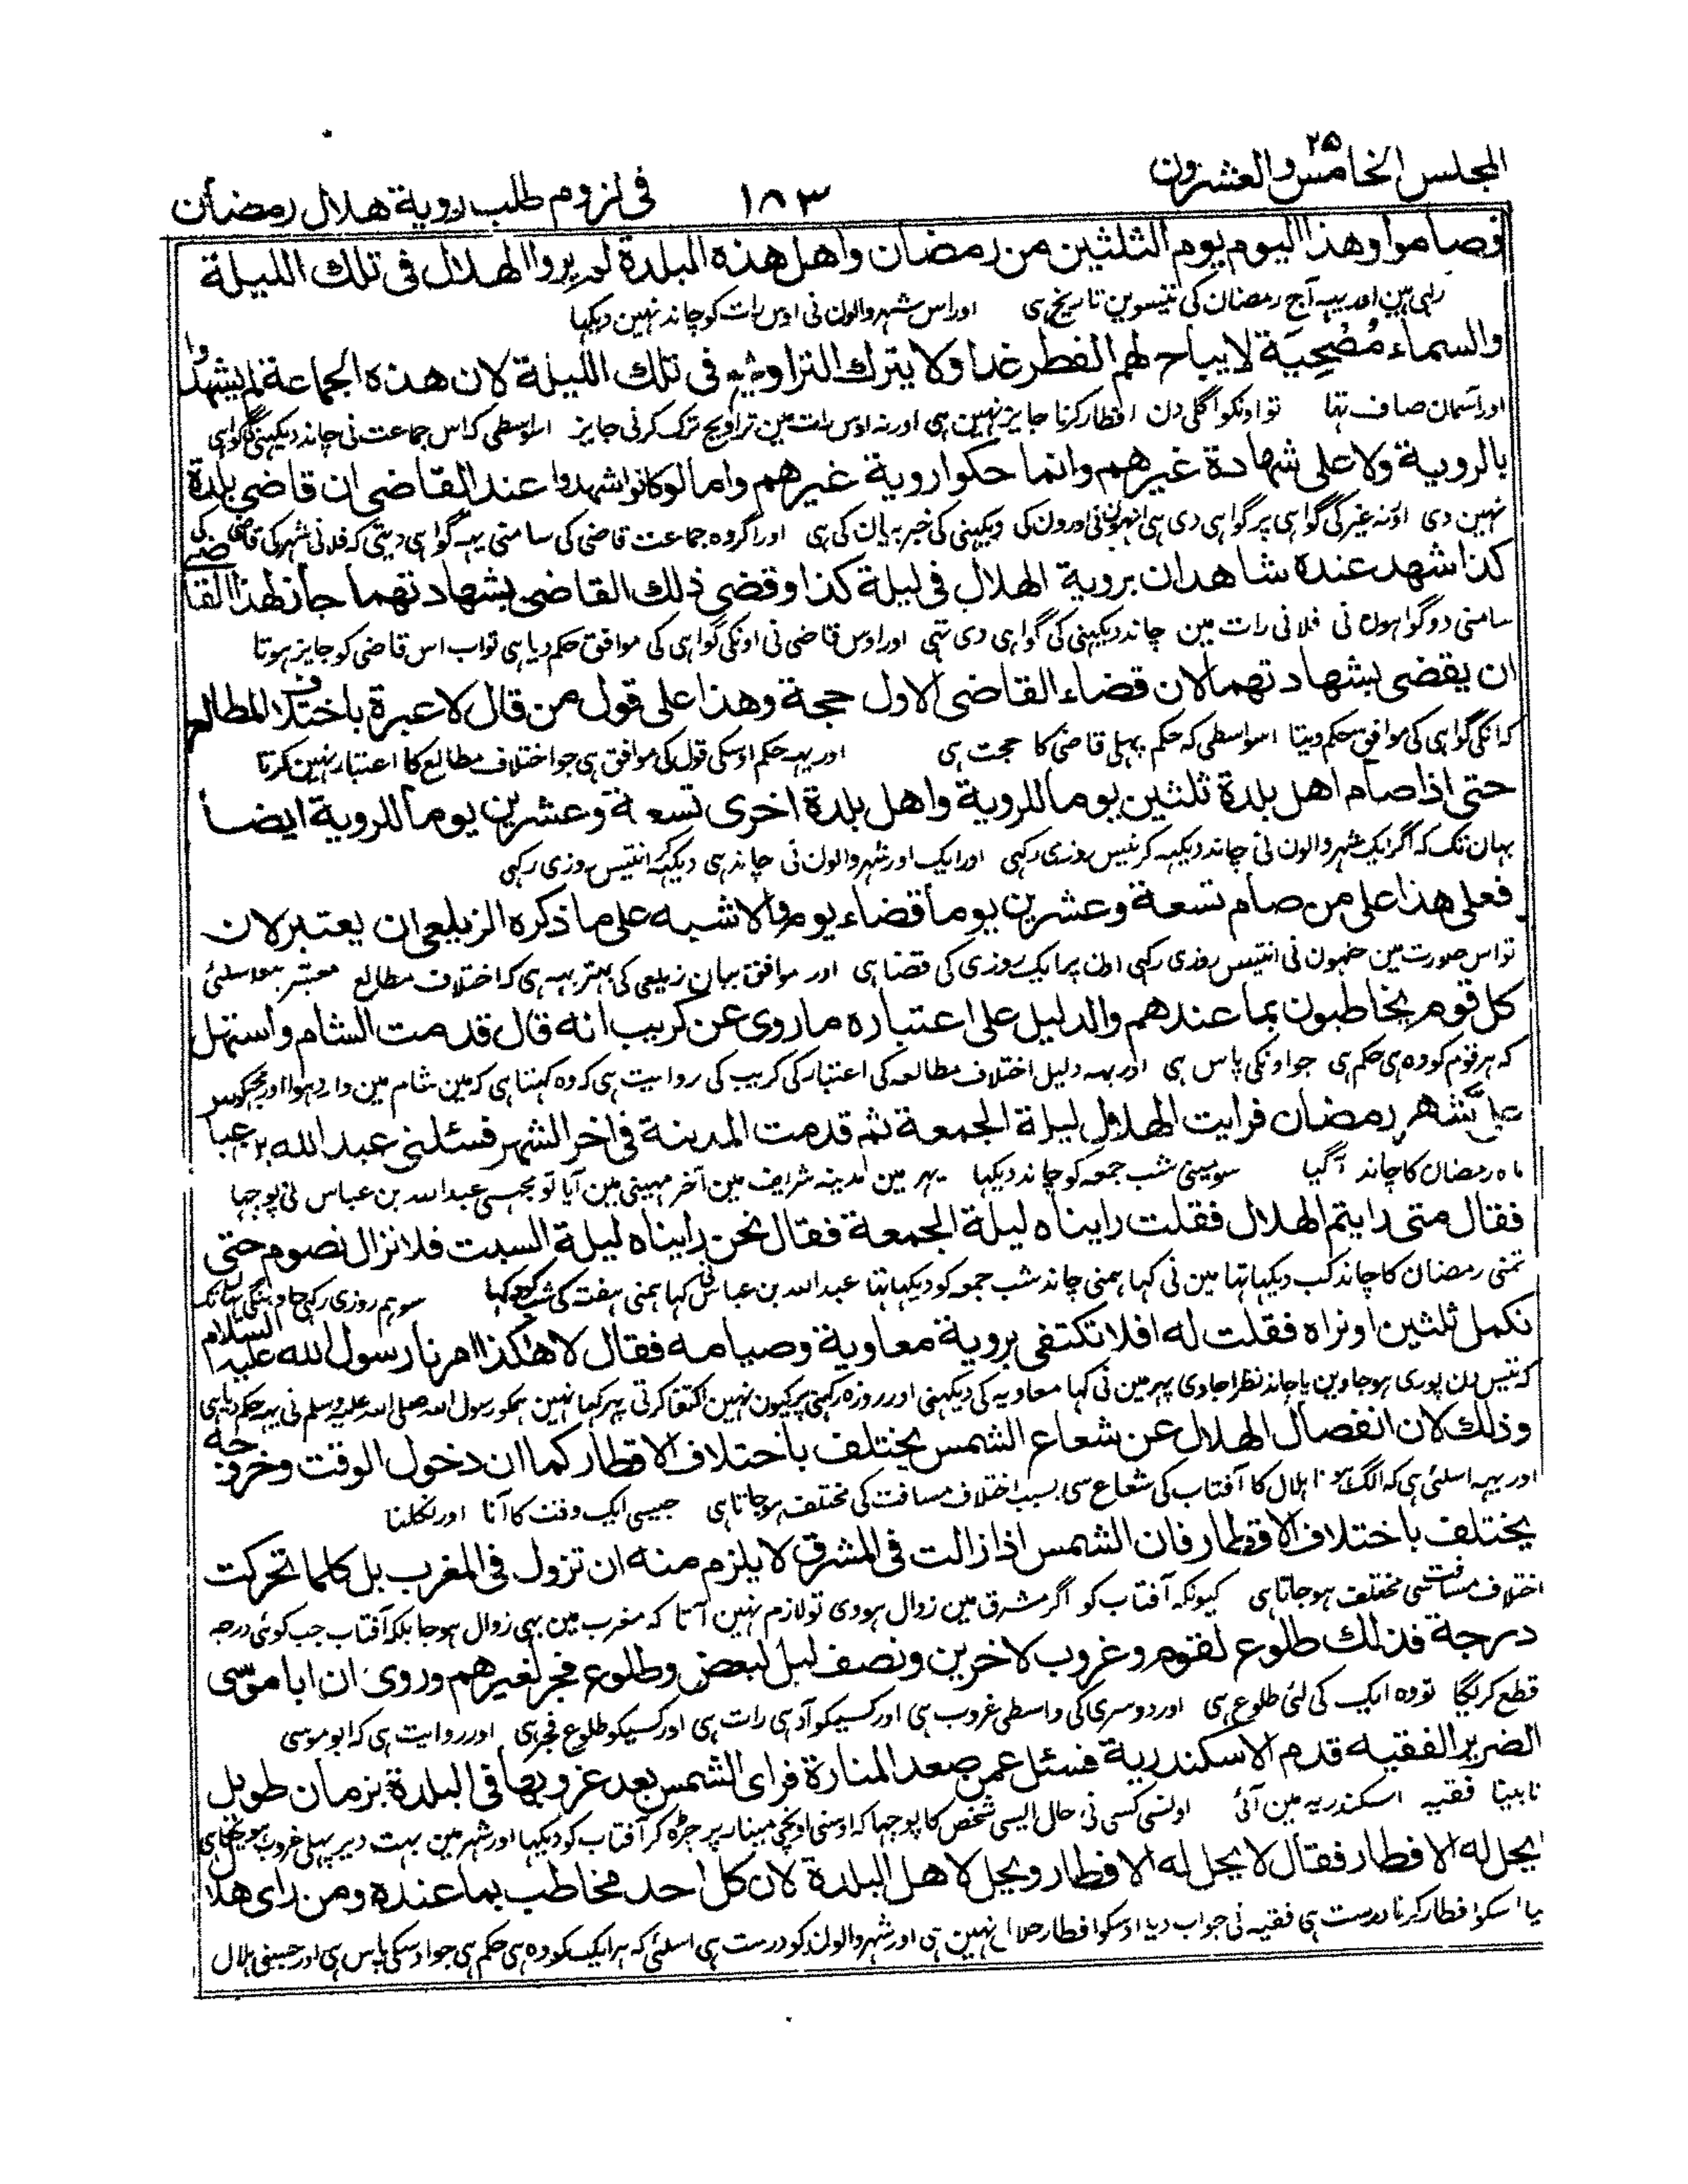 المجلس الخامس والعشرون ٢٥
١٨٣
فى لزوم طلب روية هلال رمضان
فصاموا وهذا اليوم يوم الثلثين من رمضان واهل هذه البلدة لم يروا الهلال فى تلك الليلة
رہی ہین اور یہہ آج رمضان کی تیسوین تاریخ ہی اور اس شہر والون نی اوس رات کو چاند نہین دیکہا
والسماء مُصْحِيَة لا يباح لهم الفطر غدا ولا يترك التراويح فى تلك الليلة لان هذه الجماعة لم يشهدوا
اور آسمان صاف تہا تو اونکو اگلی دن افطار کرنا جایز نہین ہی اور نہ اوس رات مین تراویح ترک کرنی جایز اسواسطی کہ اس جماعت نی چاند دیکہنی کی گواہی
بالروية ولا على شهادة غيرهم وانما حكوا روية غيرهم واما لو كانوا شهدوا عند القاضى ان قاضى بلدة
نہین دی اور نہ غیر کی گواہی پر گواہی دی ہی انہون نی اورون کی دیکہنی کی خبر بیان کی ہی اور اگر وہ جماعت قاضی کی سامنی یہہ گواہی دیتی کہ فلانی شہر کی قاضی کی
كذا شهد عنده شاهدان بروية الهلال فى ليلة كذا وقضى ذلك القاضى بشهادتهما جاز لهذا القاضى
سامنی دو گواہون نی فلانی رات مین چاند دیکہنی کی گواہی دی تہی اور اوس قاضی نی اونکی گواہی کی موافق حکم دیا ہی تو اب اس قاضی کو جایز ہوتا
ان يقضى بشهادتهما لان قضاء القاضى الاول حجة وهذا على قول من قال لا عبرة باختلاف المطالع
کہ انکی گواہی کی موافق حکم دیتا اسواسطی کہ حکم پہلی قاضی کا حجت ہی اور یہہ حکم اوسکی قول کی موافق ہی جو اختلاف مطالع کا اعتبار نہین کرتا
حتى اذا صام اهل بلدة ثلثين يوما للروية واهل بلدة اخرى تسعة وعشرين يوما للروية ايضا
یہان تک کہ اگر ایک شہر والون نی چاند دیکہہ کر تیس روزی رکہی اور ایک اور شہر والون نی چاند ہی دیکہکر انتیس روزی رکہی
فعلى هذا على من صام تسعة وعشرين يوما قضاء يوم والاشبه على ما ذكره الزيلعى ان يعتبر لان
تو اس صورت مین جنہون نی انتیس روزی رکہی اون پر ایک روزی کی قضا ہی اور موافق بیان زیلعی کی بہتر یہہ ہی کہ اختلاف مطالع معتبر ہو اسلئی
كل قوم يخاطبون بما عندهم والدليل على اعتباره ما روى عن كريب انه قال قدمت الشام واستهل
کہ ہر قوم کو وہ ہی حکم ہی جو اونکی پاس ہی اور یہہ دلیل اختلاف مطالعہ کی اعتبار کی کریب کی روایت ہی کہ وہ کہتا ہی کہ مین شام مین وارد ہوا اور مجہکو
على شهر رمضان فرايت الهلال ليلة الجمعة ثم قدمت المدينة فى اخر الشهر فسئلنى عبد الله بن عباس
ماہ رمضان کا چاند آگیا سو مینی شب جمعہ کو چاند دیکہا پہر مین مدینہ شریف مین آخر مہینی مین آیا تو مجہسی عبد اللہ بن عباس نی پوچہا
فقال متى رايتم الهلال فقلت رايناه ليلة الجمعة فقال نحن رايناه ليلة السبت فلا نزال نصوم حتى
تمنی رمضان کا چاند کب دیکہا تہا مین نی کہا ہمنی چاند شب جمعہ کو دیکہا تہا عبد اللہ بن عباس نی کہا ہمنی ہفتہ کی شب کو دیکہا سو ہم روزی رکہی جاوینگی یہانتک
نكمل ثلثين او نراه فقلت له افلا تكتفى بروية معاوية وصيامه فقال لا هكذا امرنا رسول الله عليه السلام
کہ تیس دن پوری ہو جاوین یا چاند نظر آجاوی پہر مین نی کہا معاویہ کی دیکہنی اور روزہ رکہنی پر کیون نہین اکتفا کرتی پہر کہا نہین ہمکو رسول اللہ صلی اللہ علیہ وسلم نی یہہ حکم دیا ہی
وذلك لان انفصال الهلال عن شعاع الشمس يختلف باختلاف الاقطار كما ان دخول الوقت وخروجه
اور یہہ اسلئی ہی کہ الگ ہونا ہلال کا آفتاب کی شعاع سی بسبب اختلاف مسافت کی مختلف ہو جاتا ہی جیسی ایک وقت کا آنا اور نکلنا
يختلف باختلاف الاقطار فان الشمس اذا زالت فى المشرق لا يلزم منه ان تزول فى المغرب بل كلما تحركت
اختلاف مسافت سی مختلف ہو جاتا ہی کیونکہ آفتاب کو اگر مشرق مین زوال ہووی تو لازم نہین آتا کہ مغرب مین بہی زوال ہو جا بلکہ آفتاب جب کوئی درجہ
درجة فذلك طلوع لقوم وغروب لاخرين ونصف ليل لبعض وطلوع فجر لغيرهم وروى ان ابا موسى
قطع کریگا تو وہ ایک کی لئی طلوع ہی اور دوسری کی واسطی غروب ہی اور کسیکو آدہی رات ہی اور کسیکو طلوع فجر ہی اور روایت ہی کہ ابو موسی
الضرير الفقيه قدم الاسكندرية فسئل عمن صعد المنارة فراى الشمس بعد غروبها فى البلدة بزمان طويل
نابینا فقیہ اسکندریہ مین آئی اونسی کسی نی حال ایسی شخص کا پوچہا کہ اوسنی اونچی مینار پر چڑہ کر آفتاب کو دیکہا اور شہر مین بہت دیر پہلی غروب ہو
يحل له الافطار فقال لا يحل له الافطار ويحل لاهل البلدة لان كل احد مخاطب بما عنده ومن راى هلال
یا اسکو افطار کرنا درست ہی فقیہ نی جواب دیا اوسکو افطار حلال نہین ہی اور شہر والون کو درست ہی اسلئی کہ ہر ایک کو وہ ہی حکم ہی جو اوسکی پاس ہی اور جسنی ہلال